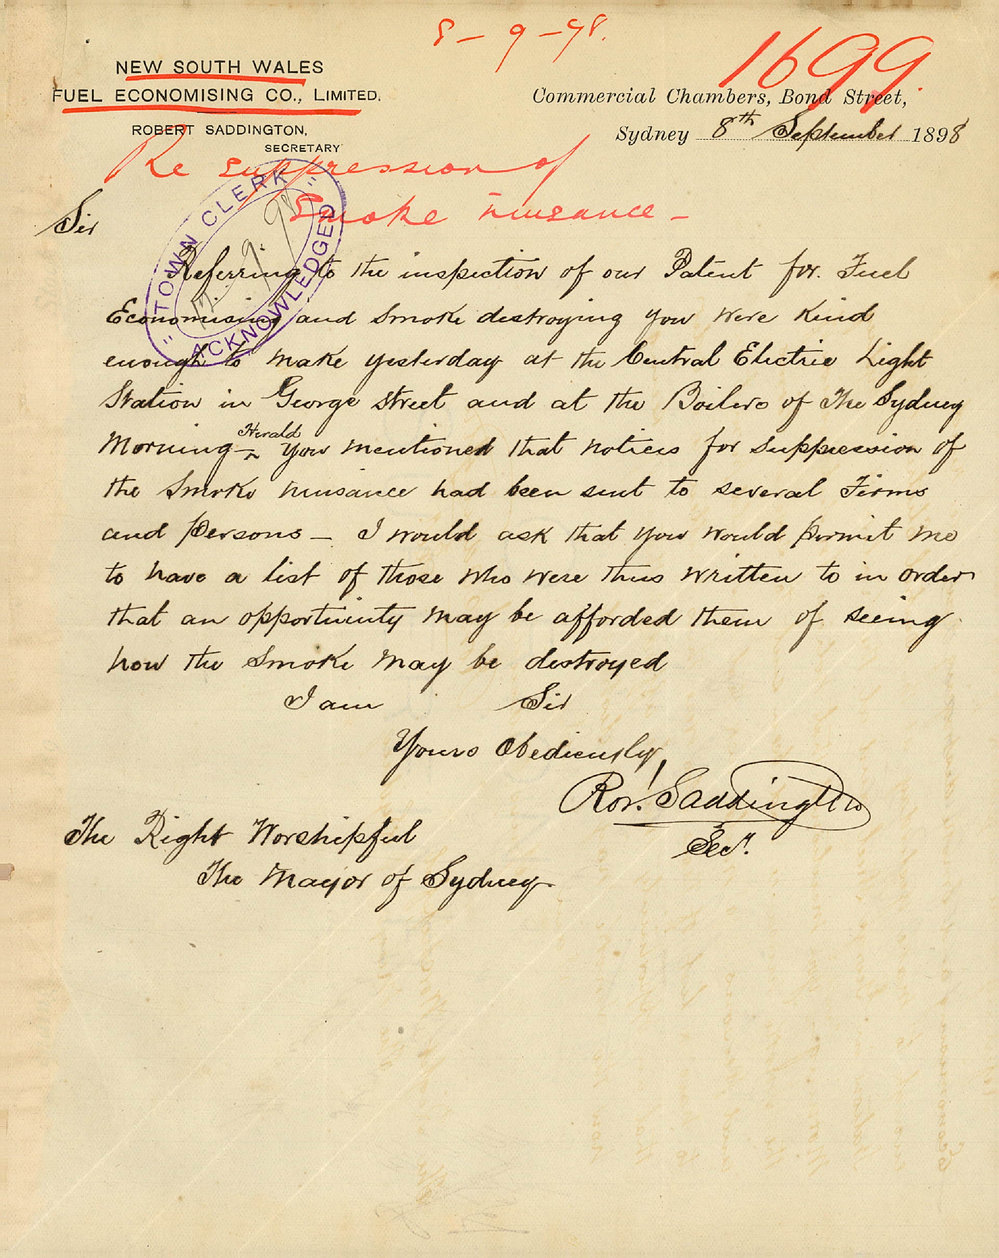 8-9-98.
1699.
NEW SOUTH WALES
FUEL ECONOMISING CO., LIMITED.
ROBERT SADDINGTON,
SECRETARY
Commercial Chambers, Bond Street,
Sydney 8th September 1898
Re Suppression of
Smoke nuisance -
"TOWN CLERK"
ACKNOWLEDGED
Sir
Referring to the inspection of our Patent for. Fuel
Economising and Smoke destroying you were kind
enough to make yesterday at the Central Electric Light
Station in George Street and at the Boilers of The Sydney
Morning Herald You mentioned that notices for suppression of
the Smoke nuisance had been sent to several Firms
and persons - I would ask that you would permit me
to have a list of those who were thus written to in order
that an opportunity may be afforded them of seeing
how the Smoke may be destroyed
I am Sir
Yours Obediently,
Robt. Saddington
Secy.
The Right Worshipful
The Mayor of Sydney.